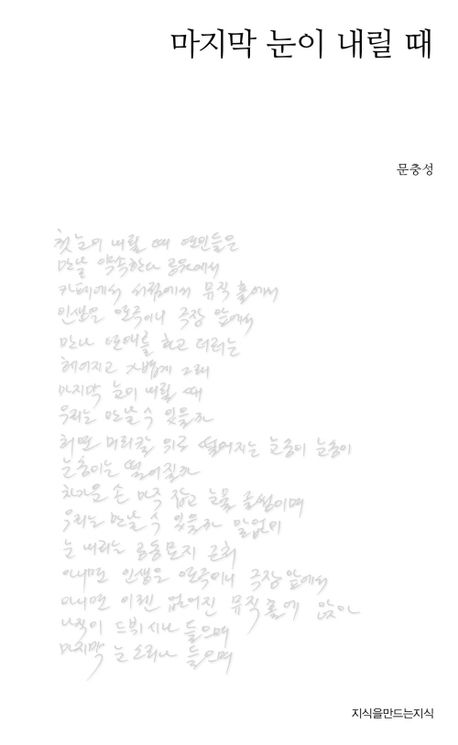 마지막 눈이 내릴 때
문충성
첫눈이 내릴 때 연인들은
만날 약속한다 공원에서
카페에서 서점에서 뮤직홀에서
인생은 연극이니 극장 앞에서
만나 연애를 하고 더러는
헤어지고 가볍게 그래
마지막 눈이 내릴 때
우리는 만날 수 있을까
허연 머리칼 위로 떨어지는 눈송이 눈송이
눈송이는 떨어질까
차가운 손 마주 잡고 눈물 글썽이며
우리는 만날 수 있을까 말없이
눈 내리는 공동묘지 근처
아니면 인생은 연극이니 극장 앞에서
아니면 이젠 없어진 뮤직홀에 앉아
나직이 드뷔시나 들으며
마지막 눈 소리나 들으며
지식을만드는지식